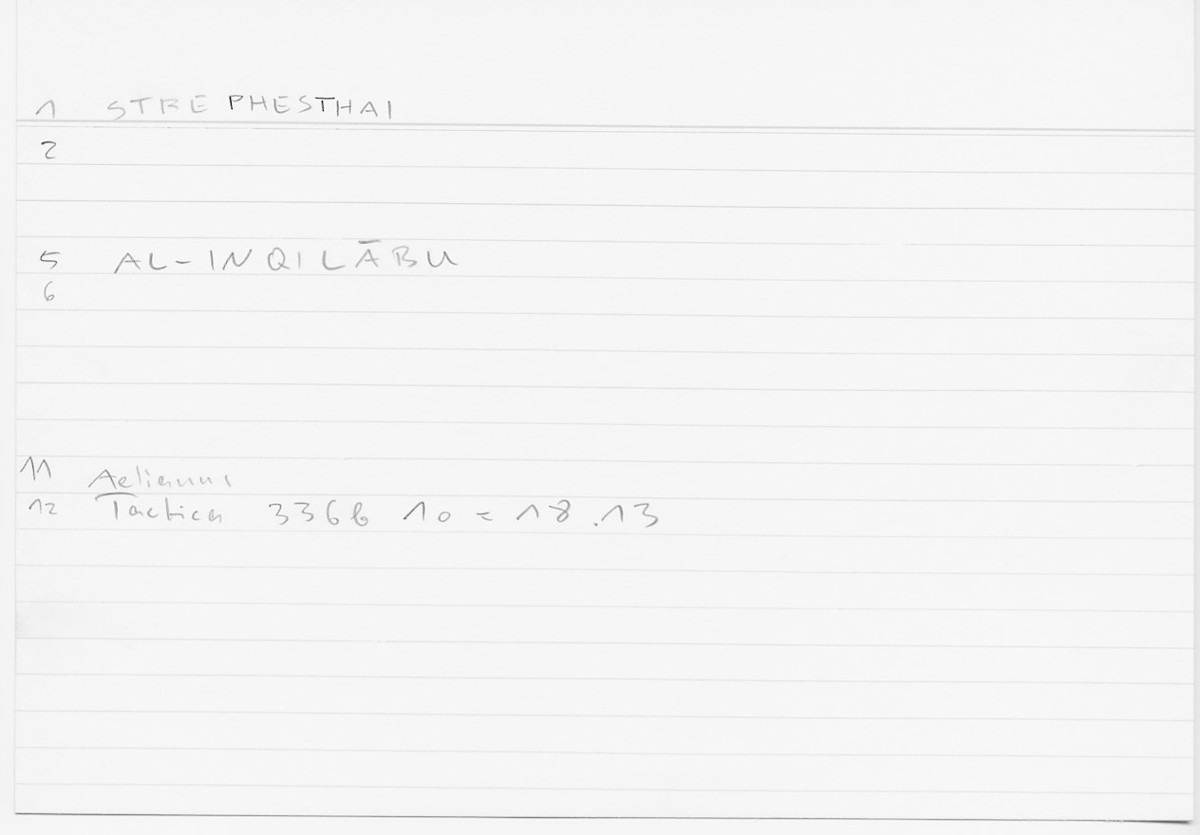 1 STREPHESTHAI
2
5 AL-INQILĀBU
6
11 Aelianus
12 Tactica 336b 10 = 18.13